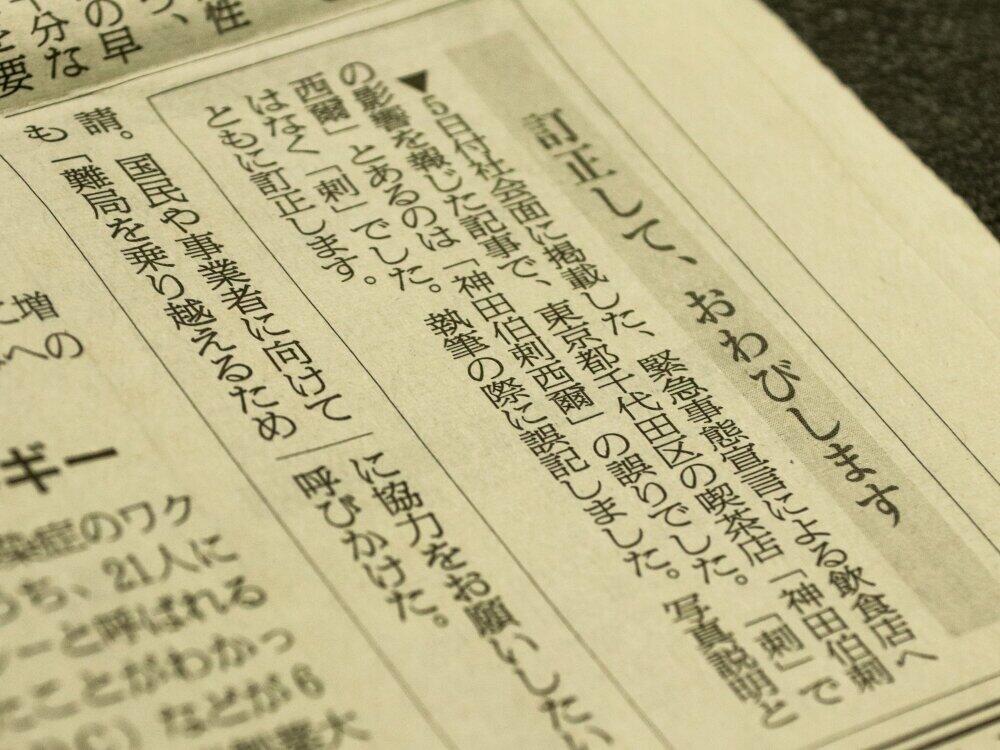 訂正して、おわびします
▼5日付社会面に掲載した、緊急事態宣言による飲食店へ
の影響を報じた記事で、東京都千代田区の喫茶店「神田伯刺
西爾」とあるのは「神田伯剌西爾」の誤りでした。「刺」で
はなく「剌」でした。執筆の際に誤記しました。写真説明と
ともに訂正します。
性
の早
分な
要
請。国民や事業者に向けて
も「難局を乗り越えるため
に協力をお願いしたい
呼びかけた。
に増
への
ギー
染症のワク
うち、21人に
ーと呼ばれる
たことがわかっ
C）などが6